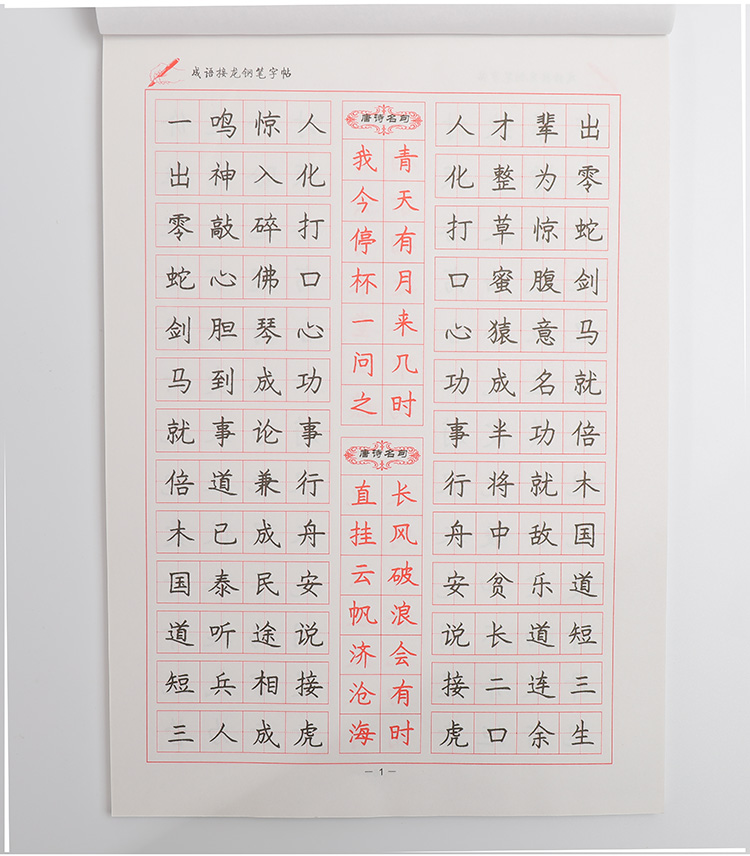 成语接龙钢笔字帖
一鸣惊人
人才辈出
出神入化
化整为零
零敲碎打
打草惊蛇
蛇心佛口
口蜜腹剑
剑胆琴心
心猿意马
马到成功
功成名就
就事论事
事半功倍
倍道兼行
行将就木
木已成舟
舟中敌国
国泰民安
安贫乐道
道听途说
说长道短
短兵相接
接二连三
三人成虎
虎口余生
唐诗名句
青天有月来几时
我今停杯一问之
唐诗名句
长风破浪会有时
直挂云帆济沧海
— 1 —